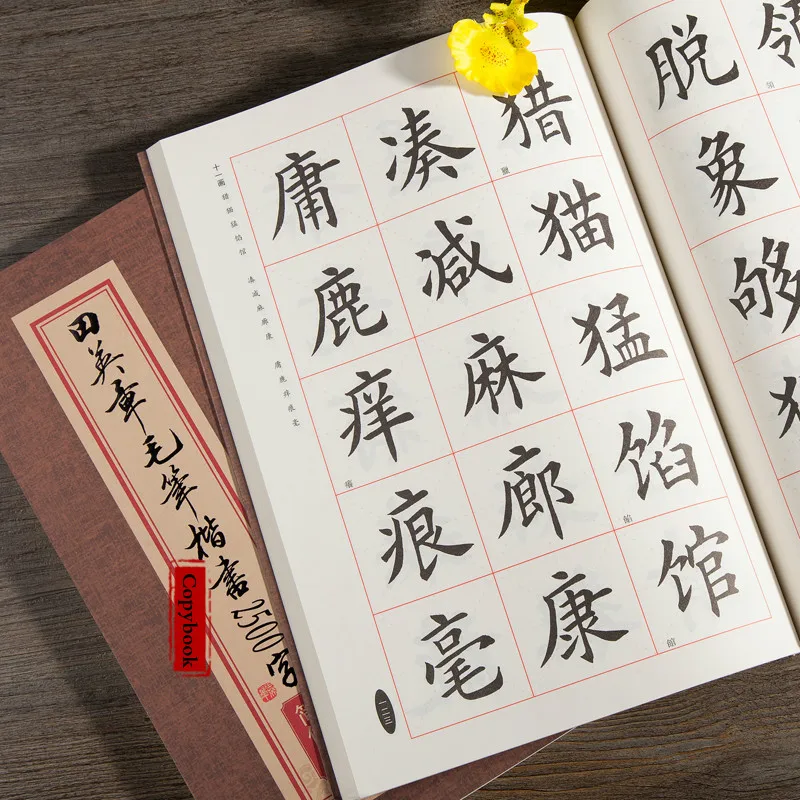 脱
象
够
领
領
猎猫猛馅馆
獵
餡
館
凑减麻廊康
庸鹿痒痕毫
癢
十一画 猎猫猛馅馆 凑减麻廊康 庸鹿痒痕毫
一二三
田英章毛筆楷書2500字
Copybook